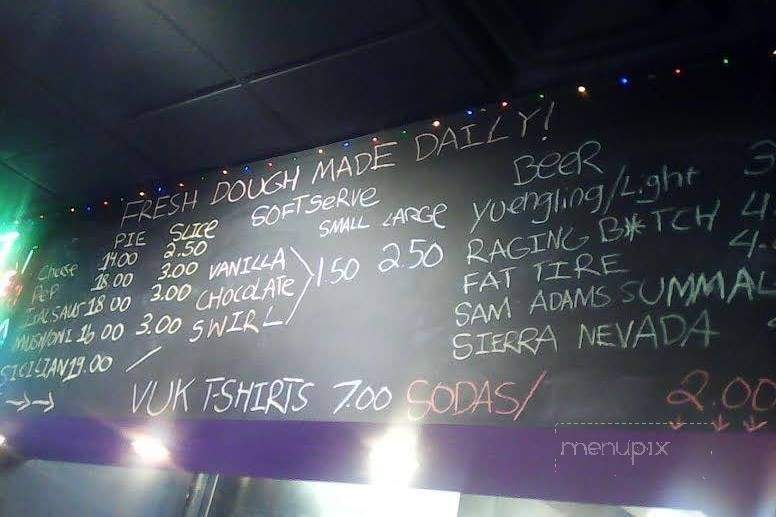 FRESH DOUGH MADE DAILY!
PIE SLICE
Cheese 14.00 2.50
PEP 18.00 3.00
ITAL SAUS 18.00 3.00
MUSH/ONI 16.00 3.00
SICILIAN 19.00 /
SOFTSERVE
SMALL LARGE
VANILLA
CHOCOLATE 1.50 2.50
SWIRL
BEER
Yuengling/Light 3
RAGING B*TCH 4
FAT TIRE 4.
SAM ADAMS SUMMA
SIERRA NEVADA
VUK T-SHIRTS 7.00 SODAS/ 2.00
menupix